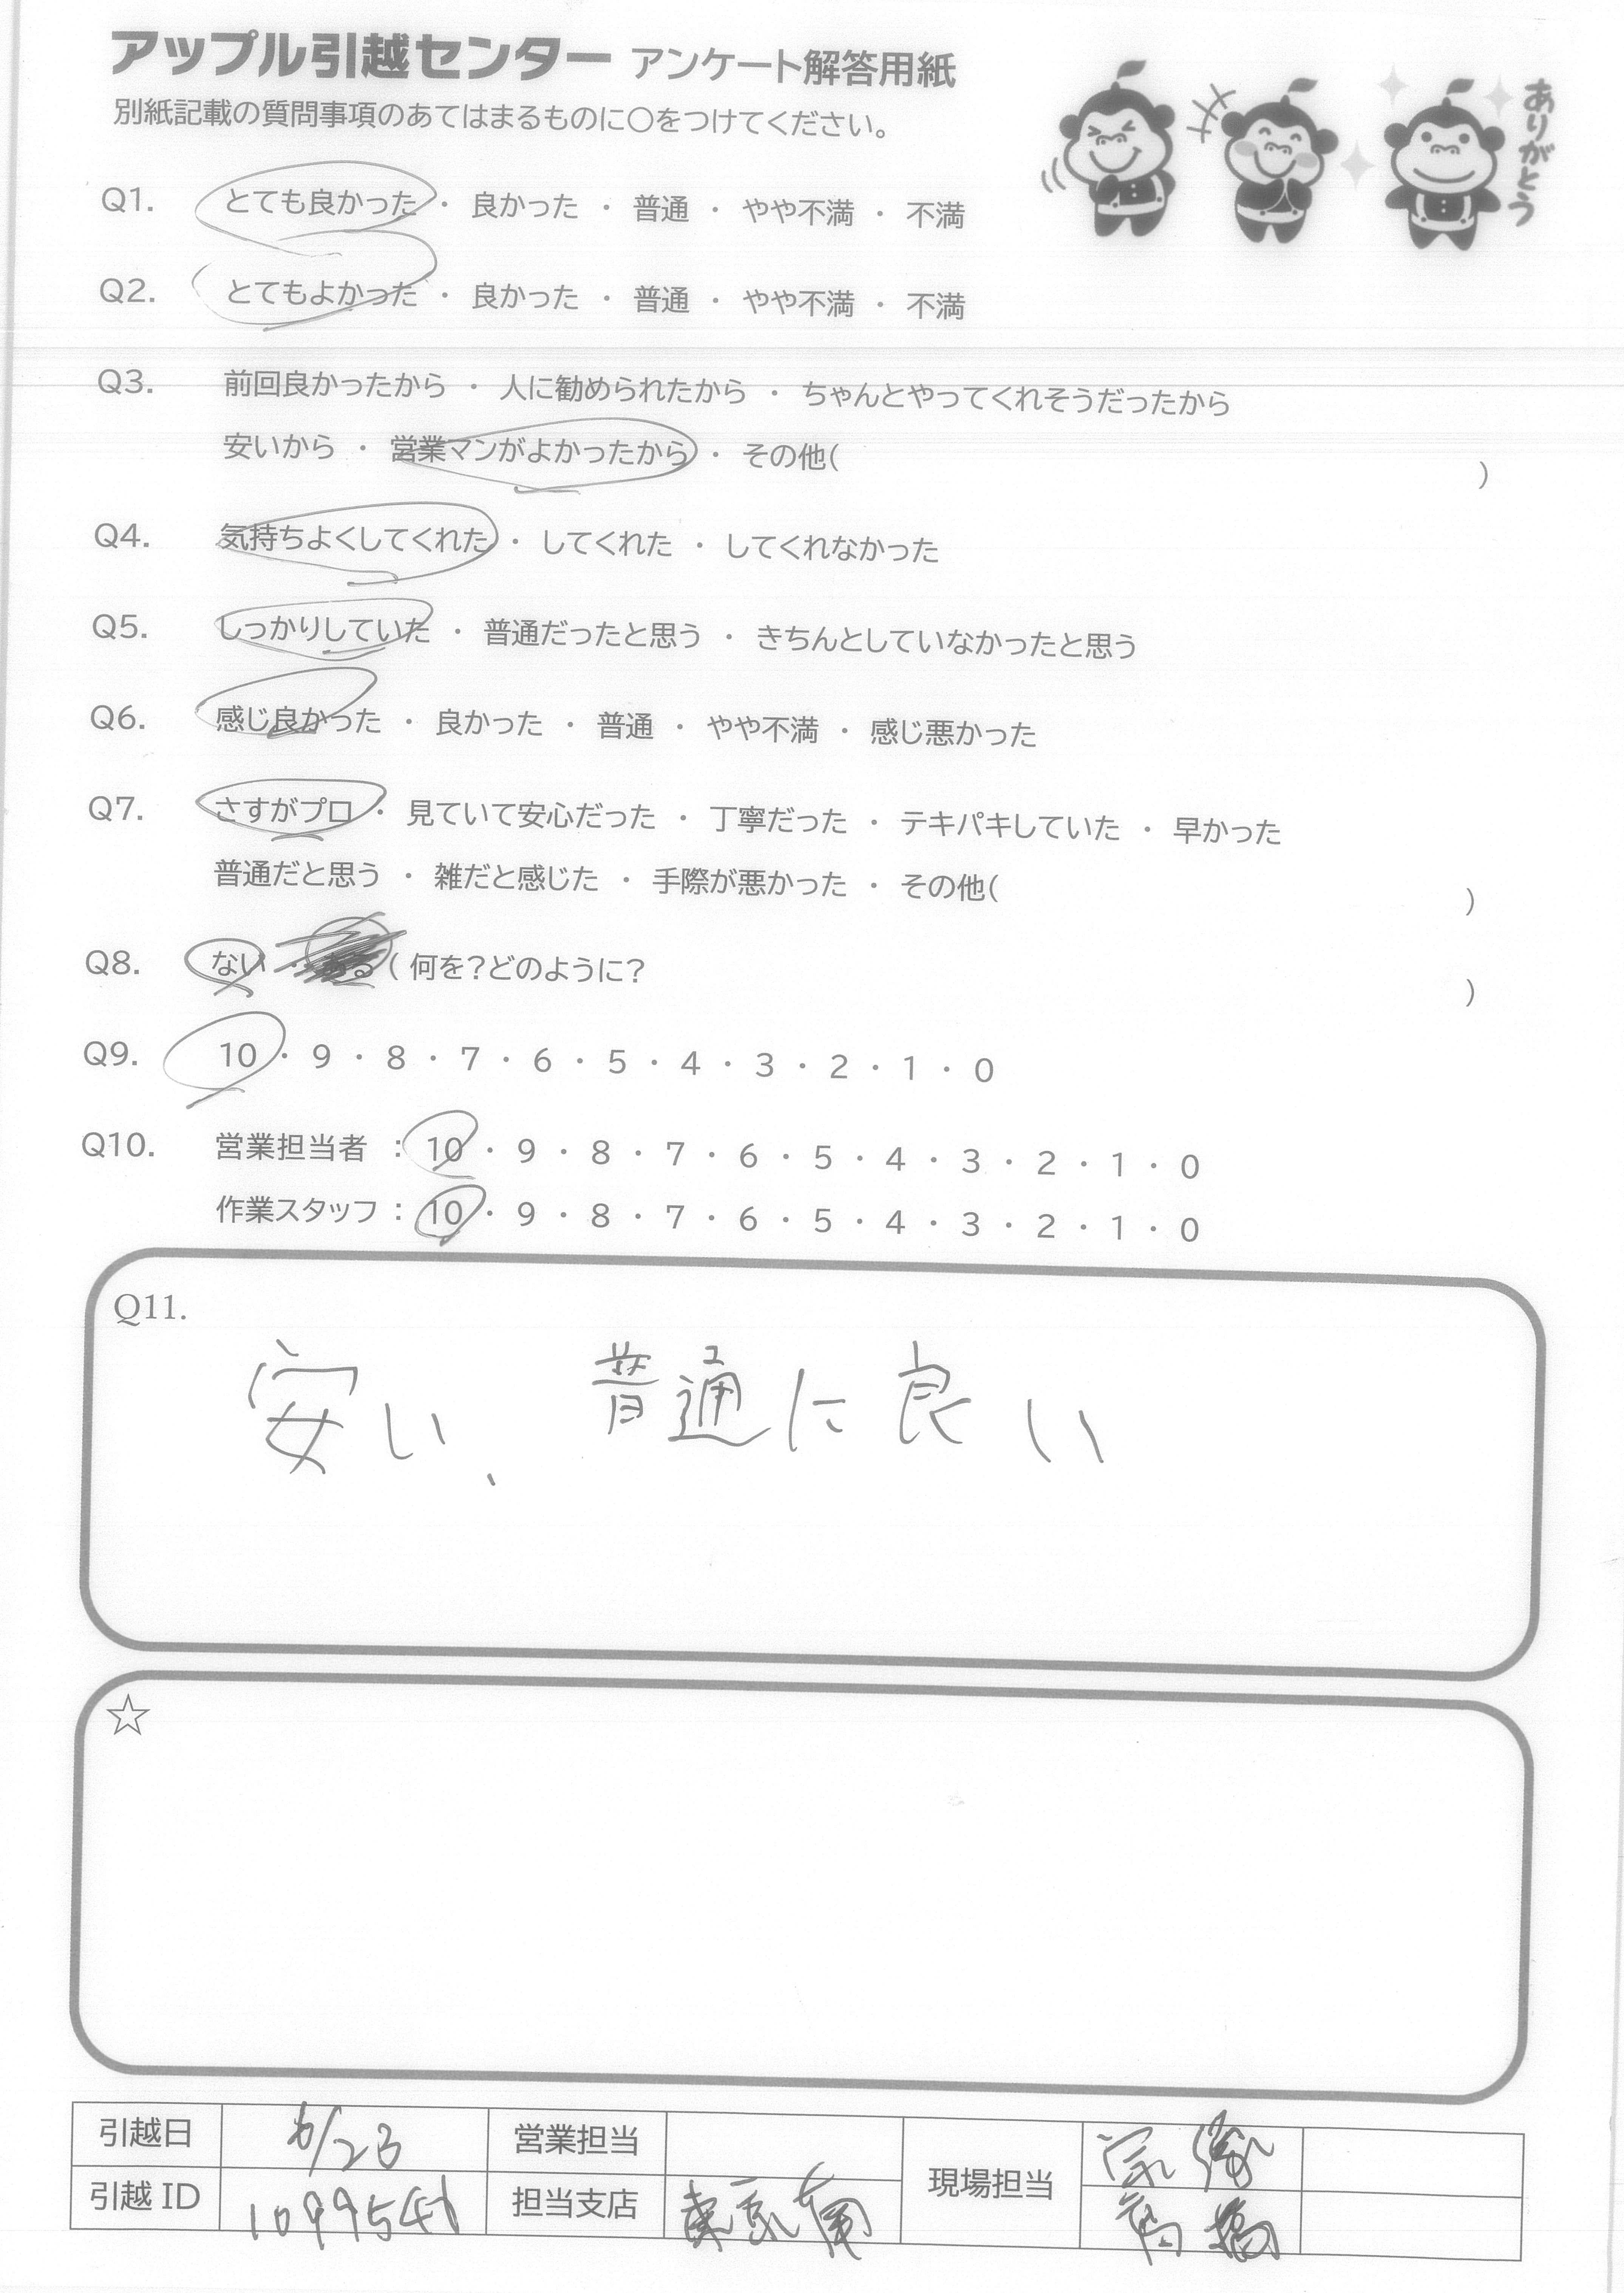 アップル引越センター アンケート解答用紙
別紙記載の質問事項のあてはまるものに○をつけてください。
ありがとう
Q1. とても良かった ・ 良かった ・ 普通 ・ やや不満 ・ 不満
Q2. とてもよかった ・ 良かった ・ 普通 ・ やや不満 ・ 不満
Q3. 前回良かったから ・ 人に勧められたから ・ ちゃんとやってくれそうだったから
安いから ・ 営業マンがよかったから ・ その他( )
Q4. 気持ちよくしてくれた ・ してくれた ・ してくれなかった
Q5. しっかりしていた ・ 普通だったと思う ・ きちんとしていなかったと思う
Q6. 感じ良かった ・ 良かった ・ 普通 ・ やや不満 ・ 感じ悪かった
Q7. さすがプロ ・ 見ていて安心だった ・ 丁寧だった ・ テキパキしていた ・ 早かった
普通だと思う ・ 雑だと感じた ・ 手際が悪かった ・ その他( )
Q8. ない ・ ある ( 何を?どのように? )
Q9. 10 ・ 9 ・ 8 ・ 7 ・ 6 ・ 5 ・ 4 ・ 3 ・ 2 ・ 1 ・ 0
Q10. 営業担当者 : 10 ・ 9 ・ 8 ・ 7 ・ 6 ・ 5 ・ 4 ・ 3 ・ 2 ・ 1 ・ 0
作業スタッフ : 10 ・ 9 ・ 8 ・ 7 ・ 6 ・ 5 ・ 4 ・ 3 ・ 2 ・ 1 ・ 0
Q11.
安い、普通に良い
☆
引越日 6/23 営業担当 現場担当
引越 ID 担当支店 東京南 高橋